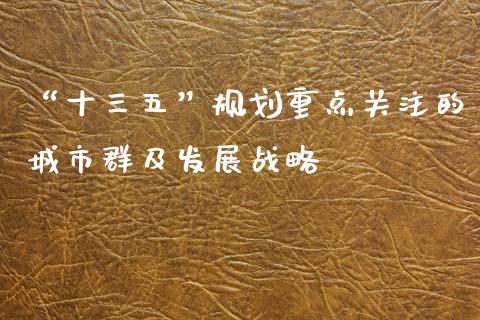 “十三五”规划重点关注的
城市群及发展战略